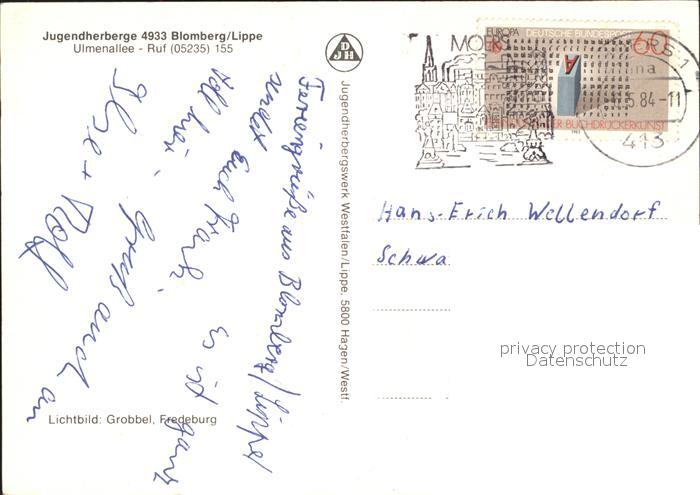 Jugendherberge 4933 Blomberg/Lippe
Ulmenallee - Ruf (05235) 155
DJH
Jugendherbergswerk Westfalen/Lippe, 5800 Hagen/Westf.
Feriengrüße aus Blomberg/Lippe
sendet Euch Frank. Es ist ganz
toll hier. Gruß auch an
Ilse + Rolf
Lichtbild: Grobbel, Fredeburg
MOERS
EUROPA
DEUTSCHE BUNDESPOST
60
A
BUCHDRUCKERKUNST
ERS 1
5.84-11
413
Hans-Erich Wellendorf
Schwa
privacy protection
Datenschutz